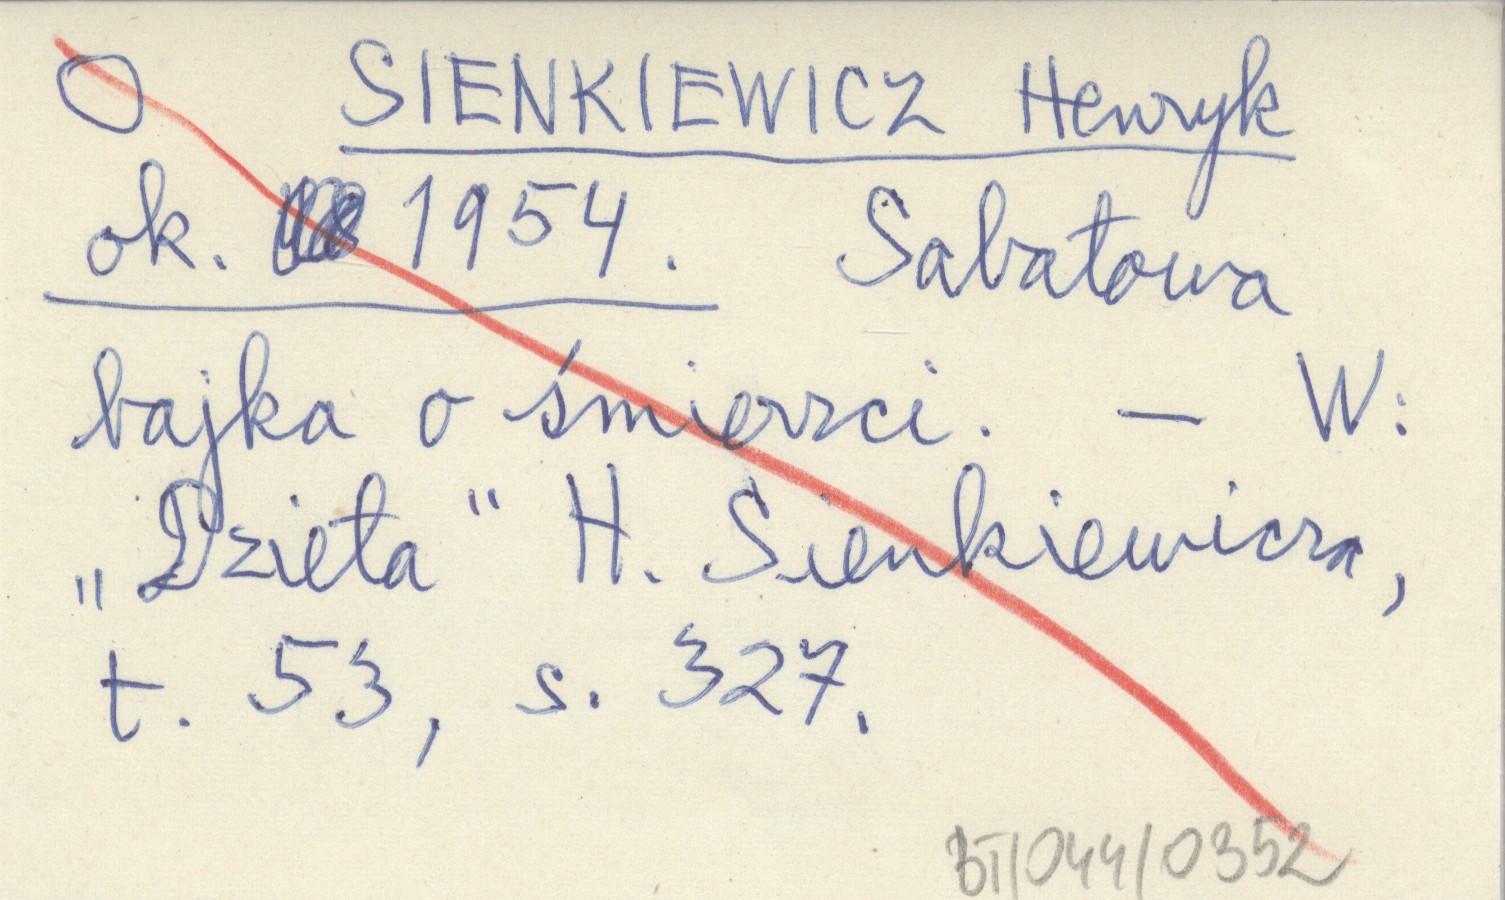 SIENKIEWICZ Henryk
ok. 1954. Sabałowa
bajka o śmierzci. — W:
„Dzieła" H. Sienkiewicza,
t. 53, s. 327.
BT/044/0352